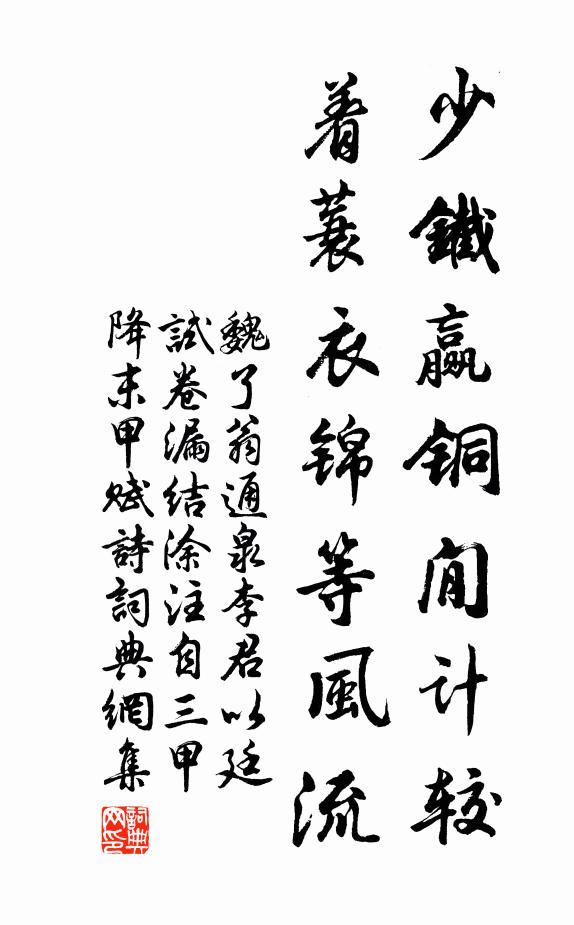 少鐵赢铜閒计较
着蓑衣锦等風流
魏了翁通泉李君以廷
試卷漏結涂注自三甲
降末甲賦詩詞典網集
詞典网印